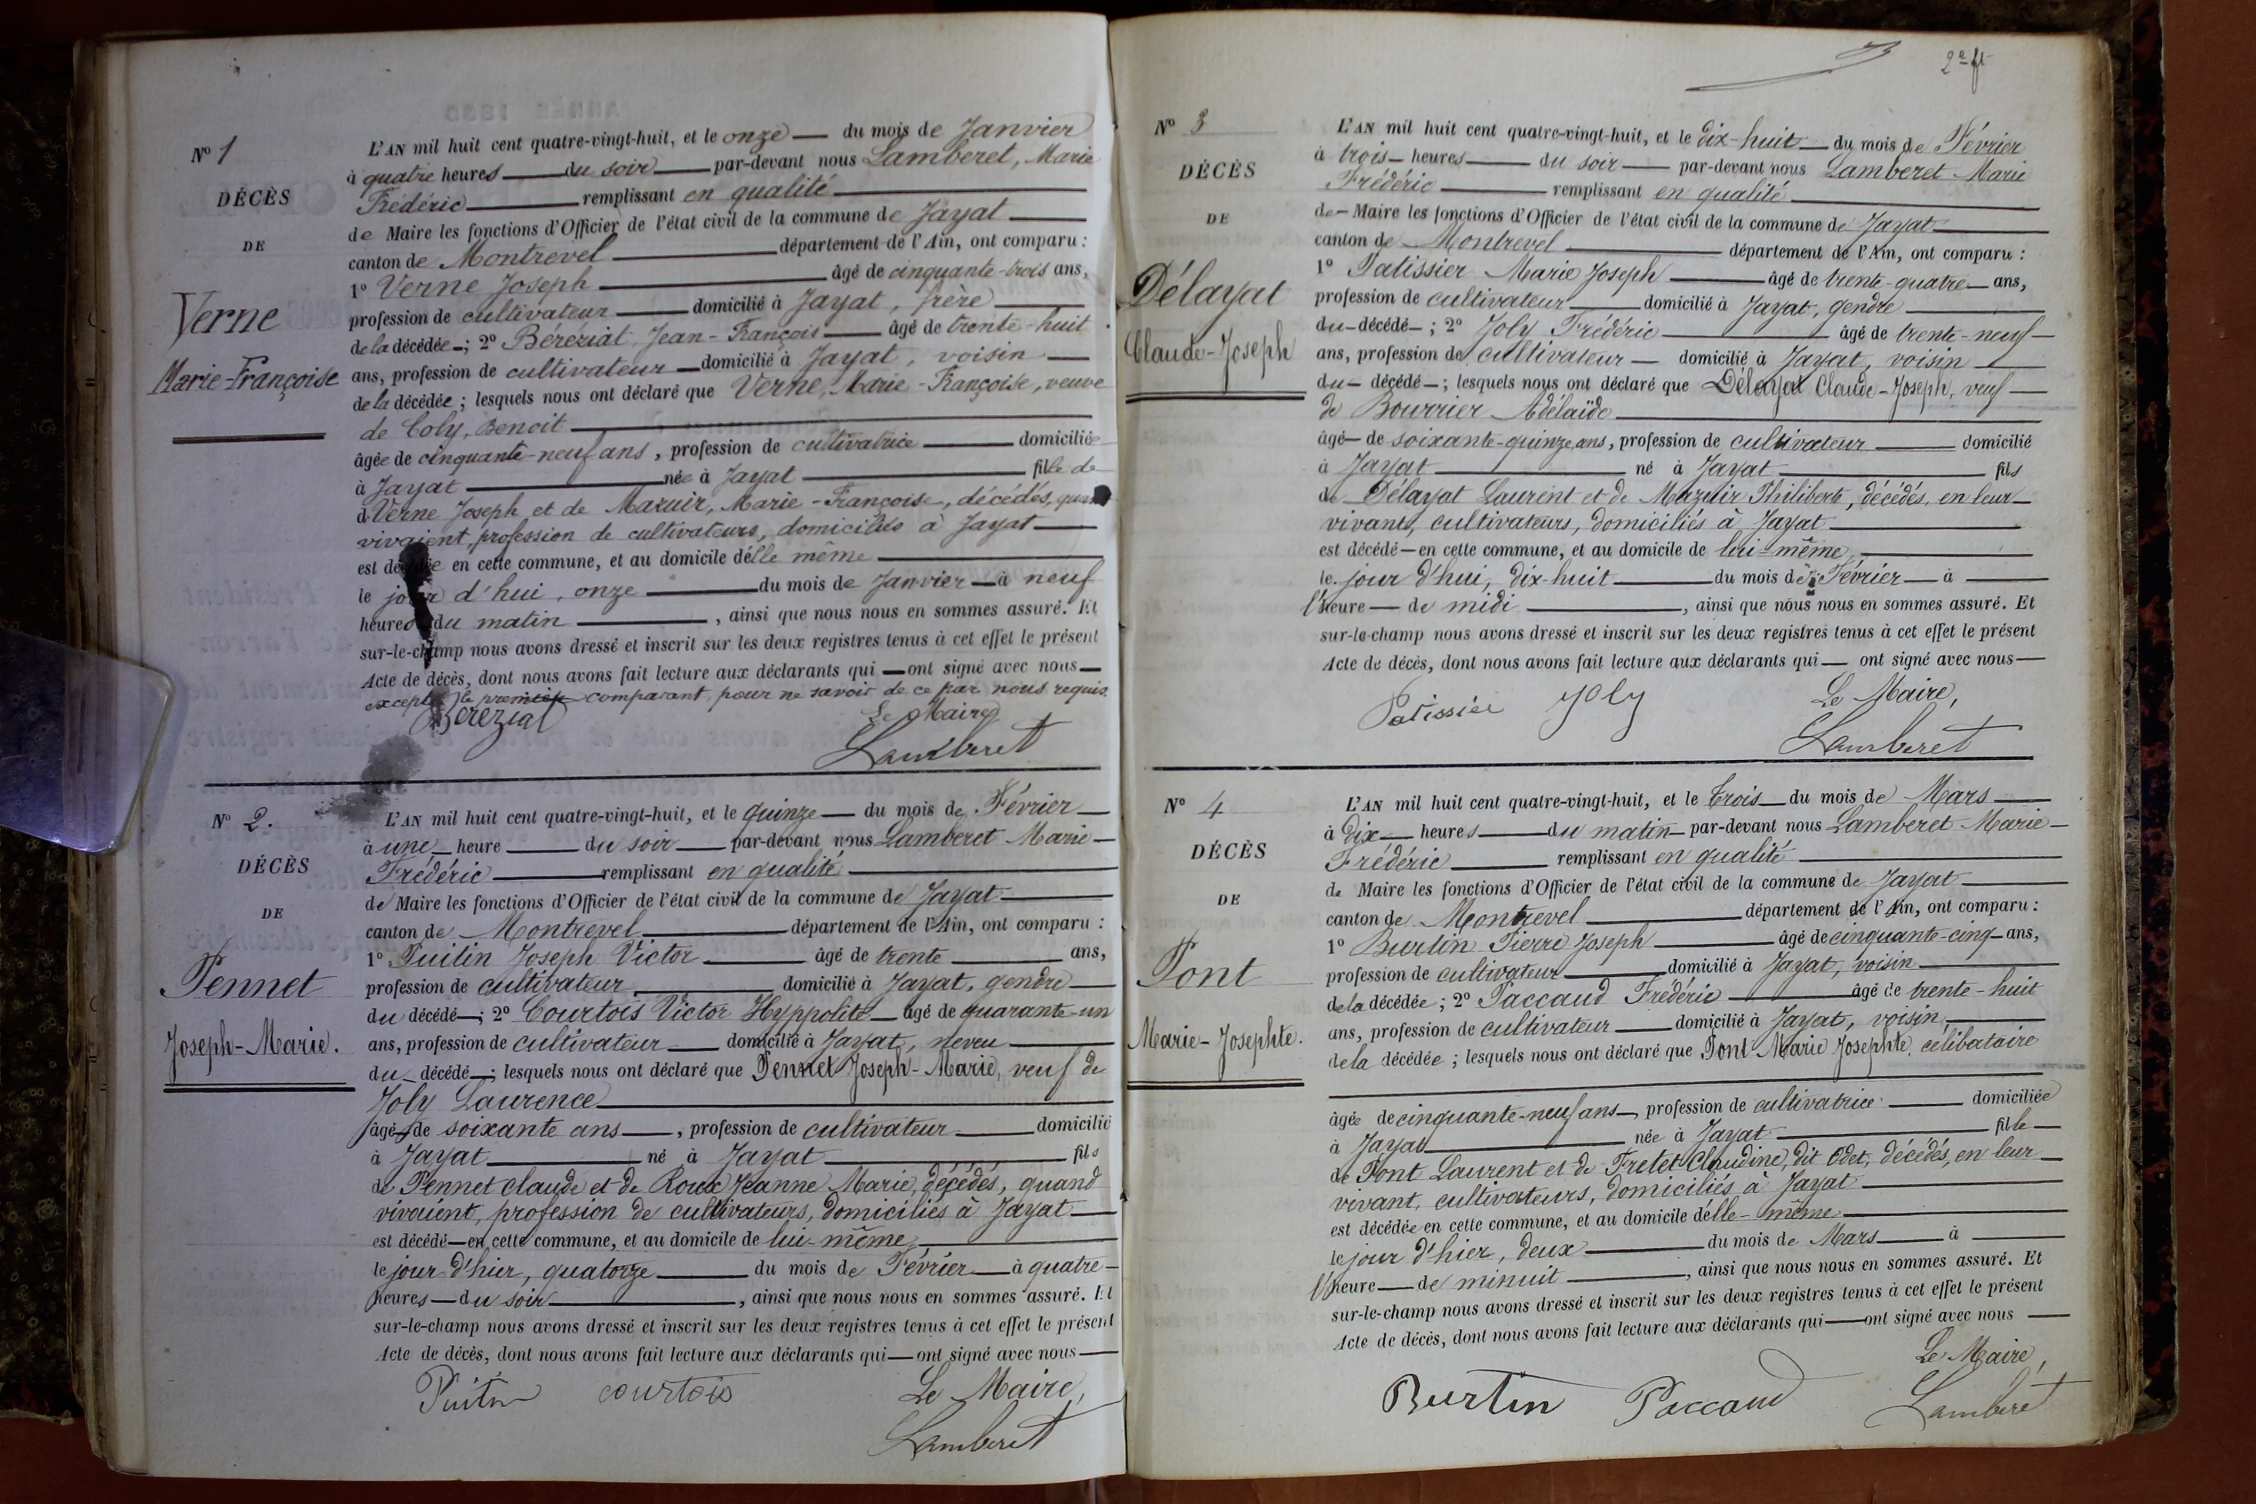 N° 1
DÉCÈS
DE
Verne
Marie-Françoise
L'AN mil huit cent quatre-vingt-huit, et le onze du mois de Janvier
à quatre heures du soir par-devant nous Lamberet, Marie
Frédéric remplissant en qualité
de Maire les fonctions d'Officier de l'état civil de la commune de Jayat
canton de Montrevel département de l'Ain, ont comparu :
1° Verne Joseph âgé de cinquante-trois ans,
profession de cultivateur domicilié à Jayat, frère
de la décédée ; 2° Béréziat Jean-François âgé de trente-huit
ans, profession de cultivateur domicilié à Jayat, voisin
de la décédée ; lesquels nous ont déclaré que Verne, Marie-Françoise, veuve
de Coly, Benoit
âgée de cinquante-neuf ans, profession de cultivatrice domiciliée
à Jayat née à Jayat fille de
d Verne Joseph et de Mazuir, Marie-Françoise, décédés, quand
vivaient, profession de cultivateurs, domiciliés à Jayat
est décédée en cette commune, et au domicile d'elle même
le jour d'hui, onze du mois de Janvier à neuf
heures du matin, ainsi que nous nous en sommes assuré. Et
sur-le-champ nous avons dressé et inscrit sur les deux registres tenus à cet effet le présent
Acte de décès, dont nous avons fait lecture aux déclarants qui ont signé avec nous
excepté le premier comparant, pour ne savoir de ce par nous requis.
Béréziat Le Maire
Lamberet
N° 2.
DÉCÈS
DE
Pennet
Joseph-Marie.
L'AN mil huit cent quatre-vingt-huit, et le quinze du mois de Février
à une heure du soir par-devant nous Lamberet Marie
Frédéric remplissant en qualité
de Maire les fonctions d'Officier de l'état civil de la commune de Jayat
canton de Montrevel département de l'Ain, ont comparu :
1° Puitin Joseph Victor âgé de trente ans,
profession de cultivateur domicilié à Jayat, gendre
du décédé ; 2° Courtois Victor Hyppolite âgé de quarante-un
ans, profession de cultivateur domicilié à Jayat, neveu
du décédé ; lesquels nous ont déclaré que Pennet Joseph-Marie, veuf de
Joly Laurence
âgé de soixante ans, profession de cultivateur domicilié
à Jayat né à Jayat fils
de Pennet Claude et de Roux Jeanne Marie, décédés, quand
vivaient, profession de cultivateurs, domiciliés à Jayat
est décédé en cette commune, et au domicile de lui-même
le jour d'hier, quatorze du mois de Février à quatre
heures du soir, ainsi que nous nous en sommes assuré. Et
sur-le-champ nous avons dressé et inscrit sur les deux registres tenus à cet effet le présent
Acte de décès, dont nous avons fait lecture aux déclarants qui ont signé avec nous
Puitin courtois Le Maire,
Lamberet
2e ft
N° 3
DÉCÈS
DE
Délayat
Claude-Joseph
L'AN mil huit cent quatre-vingt-huit, et le dix-huit du mois de Février
à trois heures du soir par-devant nous Lamberet Marie
Frédéric remplissant en qualité
de Maire les fonctions d'Officier de l'état civil de la commune de Jayat
canton de Montrevel département de l'Ain, ont comparu :
1° Patissier Marie Joseph âgé de trente-quatre ans,
profession de cultivateur domicilié à Jayat, gendre
du décédé ; 2° Joly Frédéric âgé de trente-neuf
ans, profession de cultivateur domicilié à Jayat, voisin
du décédé ; lesquels nous ont déclaré que Délayat Claude-Joseph, veuf
de Bouvrier Adélaïde
âgé de soixante-quinze ans, profession de cultivateur domicilié
à Jayat né à Jayat fils
de Délayat Laurent et de Mazuir Philiberte, décédés, en leur
vivant, cultivateurs, domiciliés à Jayat
est décédé en cette commune, et au domicile de lui-même
le jour d'hui, dix-huit du mois de Février à
l'heure de midi, ainsi que nous nous en sommes assuré. Et
sur-le-champ nous avons dressé et inscrit sur les deux registres tenus à cet effet le présent
Acte de décès, dont nous avons fait lecture aux déclarants qui ont signé avec nous
Patissier Joly Le Maire,
Lamberet
N° 4
DÉCÈS
DE
Pont
Marie-Josephte.
L'AN mil huit cent quatre-vingt-huit, et le trois du mois de Mars
à dix heures du matin par-devant nous Lamberet Marie
Frédéric remplissant en qualité
de Maire les fonctions d'Officier de l'état civil de la commune de Jayat
canton de Montrevel département de l'Ain, ont comparu :
1° Burtin Pierre Joseph âgé de cinquante-cinq ans,
profession de cultivateur domicilié à Jayat, voisin
de la décédée ; 2° Paccaud Frédéric âgé de trente-huit
ans, profession de cultivateur domicilié à Jayat, voisin
de la décédée ; lesquels nous ont déclaré que Pont Marie Josephte, célibataire
âgée de cinquante-neuf ans, profession de cultivatrice domiciliée
à Jayat née à Jayat fille
de Pont Laurent et de Fretet Claudine, dit Odet, décédés, en leur
vivant, cultivateurs, domiciliés à Jayat
est décédée en cette commune, et au domicile d'elle-même
le jour d'hier, deux du mois de Mars à
l'heure de minuit, ainsi que nous nous en sommes assuré. Et
sur-le-champ nous avons dressé et inscrit sur les deux registres tenus à cet effet le présent
Acte de décès, dont nous avons fait lecture aux déclarants qui ont signé avec nous
Le Maire,
Burtin Paccaud Lamberet